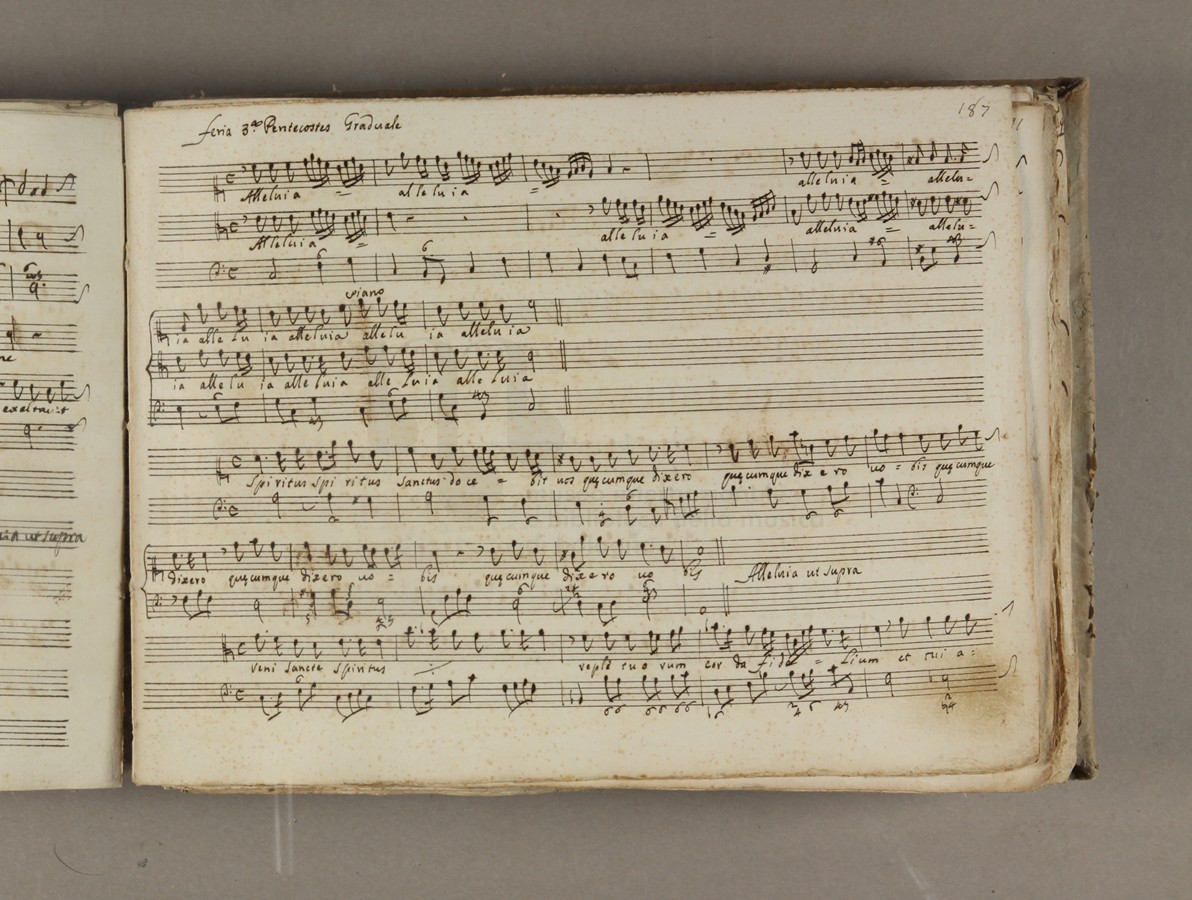 187
feria 3.ª Pentecostes Graduale
Alleluia = alleluia = alleluia = allelu=
Alleluia = alleluia = alleluia = allelu=
piano
ia allelu ia alleluia allelu ia alleluia
ia allelu ia alleluia alleluia alleluia
Spiritus spiritus Sanctus doce = bit vos quęcumque dixero quęcumque dixero vo = bis quęcumque
dixero quęcumque dixero vo = bis quęcumque dixero vo bis Alleluia ut supra
veni Sancte Spiritus reple tuorum corda fide = lium et tui a=
exaltavit
ut supra